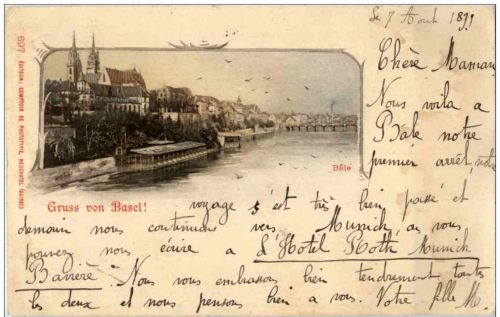 Le 7 Aout 1899
Chère Maman
Nous voila a
Bâle notre
premier arrêt, notre
voyage s'est très bien passé et
demain nous continuons vers Munich ou vous
pouvez nous écrire a L'Hotel Roth Munich
Bavière. Nous vous embrassons bien tendrement toutes
les deux et nous pensons bien a vous. Votre fille M.
Gruss von Basel!
Bâle
697 EDITEURS COMPTOIR DE PHOTOTYPIE, NEUCHATEL (SUISSE)